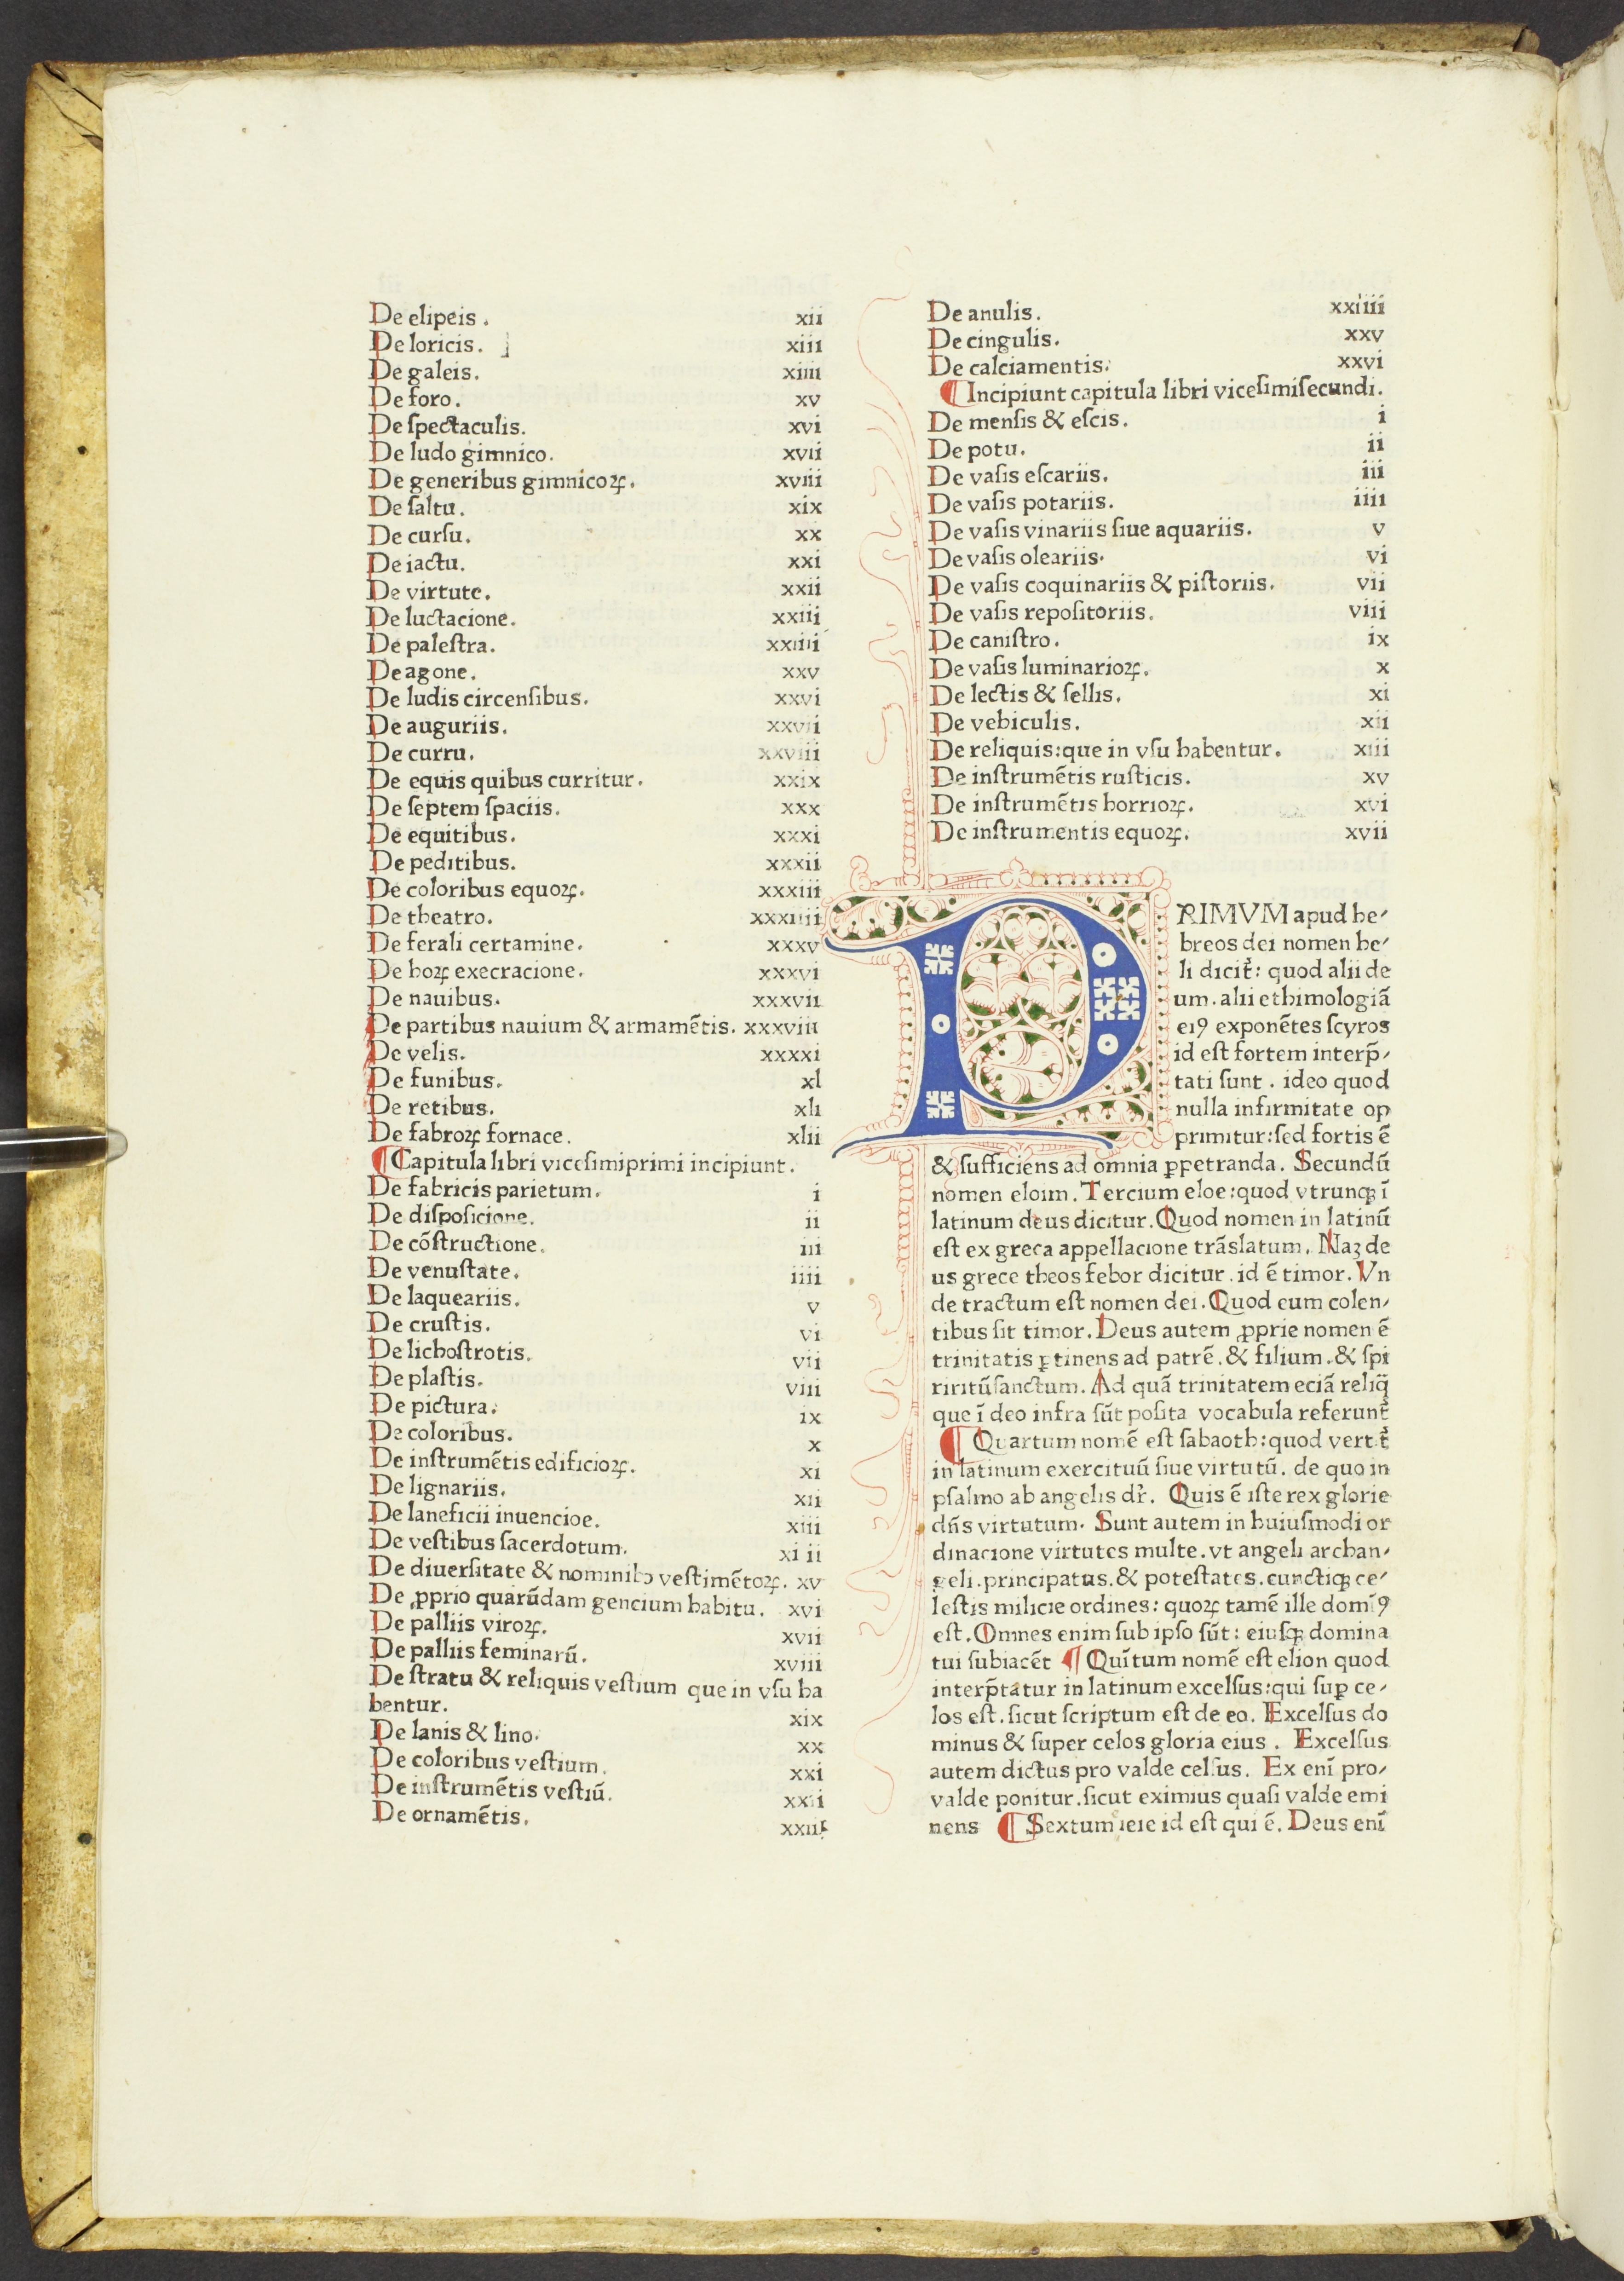 De elipeis. xii
De loricis. xiii
De galeis. xiiii
De foro. xv
De ſpectaculis. xvi
De ludo gimnico. xvii
De generibus gimnicoꝝ. xviii
De ſaltu. xix
De curſu. xx
De iactu. xxi
De virtute. xxii
De luctacione. xxiii
De paleſtra. xxiiii
De agone. xxv
De ludis circenſibus. xxvi
De auguriis. xxvii
De curru. xxviii
De equis quibus curritur. xxix
De ſeptem ſpaciis. xxx
De equitibus. xxxi
De peditibus. xxxii
De coloribus equoꝝ. xxxiii
De theatro. xxxiiii
De ferali certamine. xxxv
De hoꝝ execracione. xxxvi
De nauibus. xxxvii
De partibus nauium & armamētis. xxxviii
De velis. xxxxi
De funibus. xl
De retibus. xli
De fabroꝝ fornace. xlii
¶ Capitula libri viceſimiprimi incipiunt.
De fabricis parietum. i
De diſpoſicione. ii
De cōſtructione. iii
De venuſtate. iiii
De laqueariis. v
De cruſtis. vi
De lichoſtrotis. vii
De plaſtis. viii
De pictura. ix
De coloribus. x
De inſtrumētis edificioꝝ. xi
De lignariis. xii
De laneficii inuencioe. xiii
De veſtibus ſacerdotum. xiiii
De diuerſitate & nominib veſtimētoꝝ. xv
De ꝓprio quarūdam gencium habitu. xvi
De palliis viroꝝ. xvii
De palliis feminarū. xviii
De ſtratu & reliquis veſtium que in vſu ha
bentur. xix
De lanis & lino. xx
De coloribus veſtium. xxi
De inſtrumētis veſtiū. xxii
De ornamētis. xxiii
De anulis. xxiiii
De cingulis. xxv
De calciamentis. xxvi
¶ Incipiunt capitula libri viceſimiſecundi.
De menſis & eſcis. i
De potu. ii
De vaſis eſcariis. iii
De vaſis potariis. iiii
De vaſis vinariis ſiue aquariis. v
De vaſis oleariis. vi
De vaſis coquinariis & piſtoriis. vii
De vaſis repoſitoriis. viii
De caniſtro. ix
De vaſis luminarioꝝ. x
De lectis & ſellis. xi
De vehiculis. xii
De reliquis:que in vſu habentur. xiii
De inſtrumētis ruſticis. xv
De inſtrumētis horrioꝝ. xvi
De inſtrumentis equoꝝ. xvii
PRIMVM apud he⸗
breos dei nomen he⸗
li dicit̄: quod alii de
um. alii ethimologiā
eiꝰ exponētes ſcyros
id eſt fortem interp̄⸗
tati ſunt. ideo quod
nulla infirmitate op
primitur:ſed fortis ē
& ſufficiens ad omnia ꝑpetranda. Secundū
nomen eloim. Tercium eloe:quod vtrunqꝫ ī
latinum deus dicitur. Quod nomen in latinū
eſt ex greca appellacione trāſlatum. Naꝫ de
us grece theos febor dicitur. id ē timor. Vn
de tractum eſt nomen dei. Quod eum colen⸗
tibus ſit timor. Deus autem ꝓprie nomen ē
trinitatis ꝑtinens ad patrē. & filium. & ſpi
riritū ſanctum. Ad quā trinitatem eciā reliq̄
que ī deo infra ſūt poſita vocabula referunt̄
¶ Quartum nomē eſt ſabaoth:quod vertit̄
in latinum exercituū ſiue virtutū. de quo in
pſalmo ab angelis dr̄. Quis ē iſte rex glorie
dn̄s virtutum. Sunt autem in huiuſmodi or
dinacione virtutes multe. vt angeli archan⸗
geli. principatus. & poteſtates. cunctiqꝫ ce⸗
leſtis milicie ordines: quoꝝ tamē ille domīꝰ
eſt. Omnes enim ſub ipſo ſūt: eiuſqꝫ domina
tui ſubiacēt ¶ Quītum nomē eſt elion quod
interp̄tatur in latinum excelſus:qui ſuꝑ ce⸗
los eſt. ſicut ſcriptum eſt de eo. Excelſus do
minus & ſuper celos gloria eius. Excelſus
autem dictus pro valde celſus. Ex enī pro⸗
valde ponitur. ſicut eximius quaſi valde emi
nens ¶ Sextum ieie id eſt qui ē. Deus enī